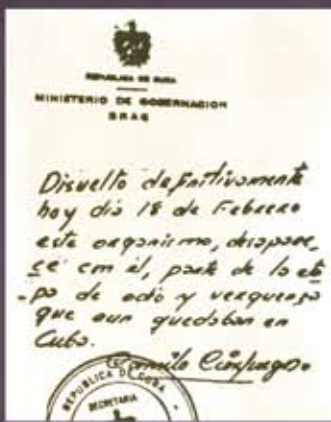 REPUBLICA DE CUBA
MINISTERIO DE GOBERNACION
BRAC
Disuelto definitivamente
hoy dia 18 de Febrero
este organismo, desapare,
ce con el, parte de la eta
-pa de odio y verguenza
que aun quedaban en
Cuba.
Camilo Cienfuegos
REPUBLICA DE CUBA
SECRETARIA